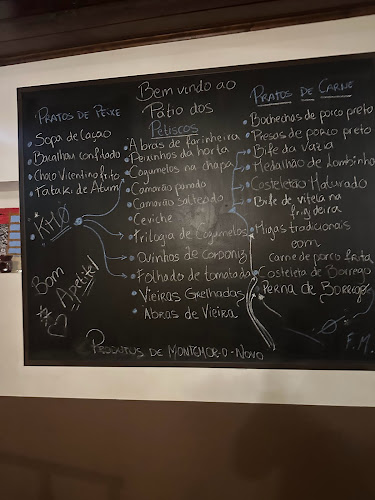 Bem vindo ao
Pátio dos
Petiscos
PRATOS DE PEIXE
• Sopa de Cação
• Bacalhau confidado
• Choco Vicentino frito
• Tataki de Atum
KM0
Bom
Apetite!
• Abras de farinheira
• Peixinhos da horta
• Cogumelos na chapa
• Camarão panado
• Camarão salteado
• Ceviche
• Trilogia de Cogumelos
• Ovinhos de Codorniz
• Folhado de tomatada
• Vieiras Grelhadas
• Abras de Vieira
PRATOS DE CARNE
• Bochechas de porco preto
• Presas de porco preto
• Bife da Vazia
• Medalhão de Lombinho
• Costeletão Maturado
• Bife de vitela na
frigideira
• Migas tradicionais
com
carne de porco frita
• Costeleta de Borrego
• Perna de Borrego
F.M.
PRODUTOS DE MONTEMOR-O-NOVO